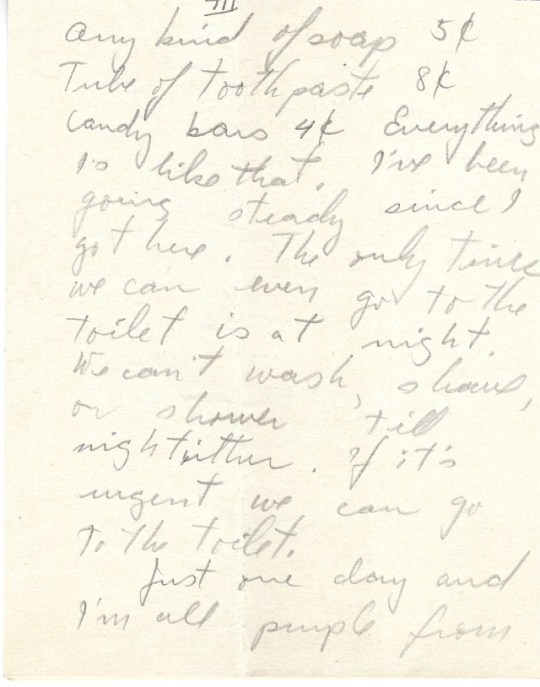 III
any kind of soap 5¢
Tube of tooth paste 8¢
Candy bars 4¢ Everything
is like that. I've been
going steady since I
got here. The only times
we can even go to the
toilet is at night.
We can't wash, shave,
or shower till
night either. If it's
urgent we can go
to the toilet.
Just one day and
I'm all purple from